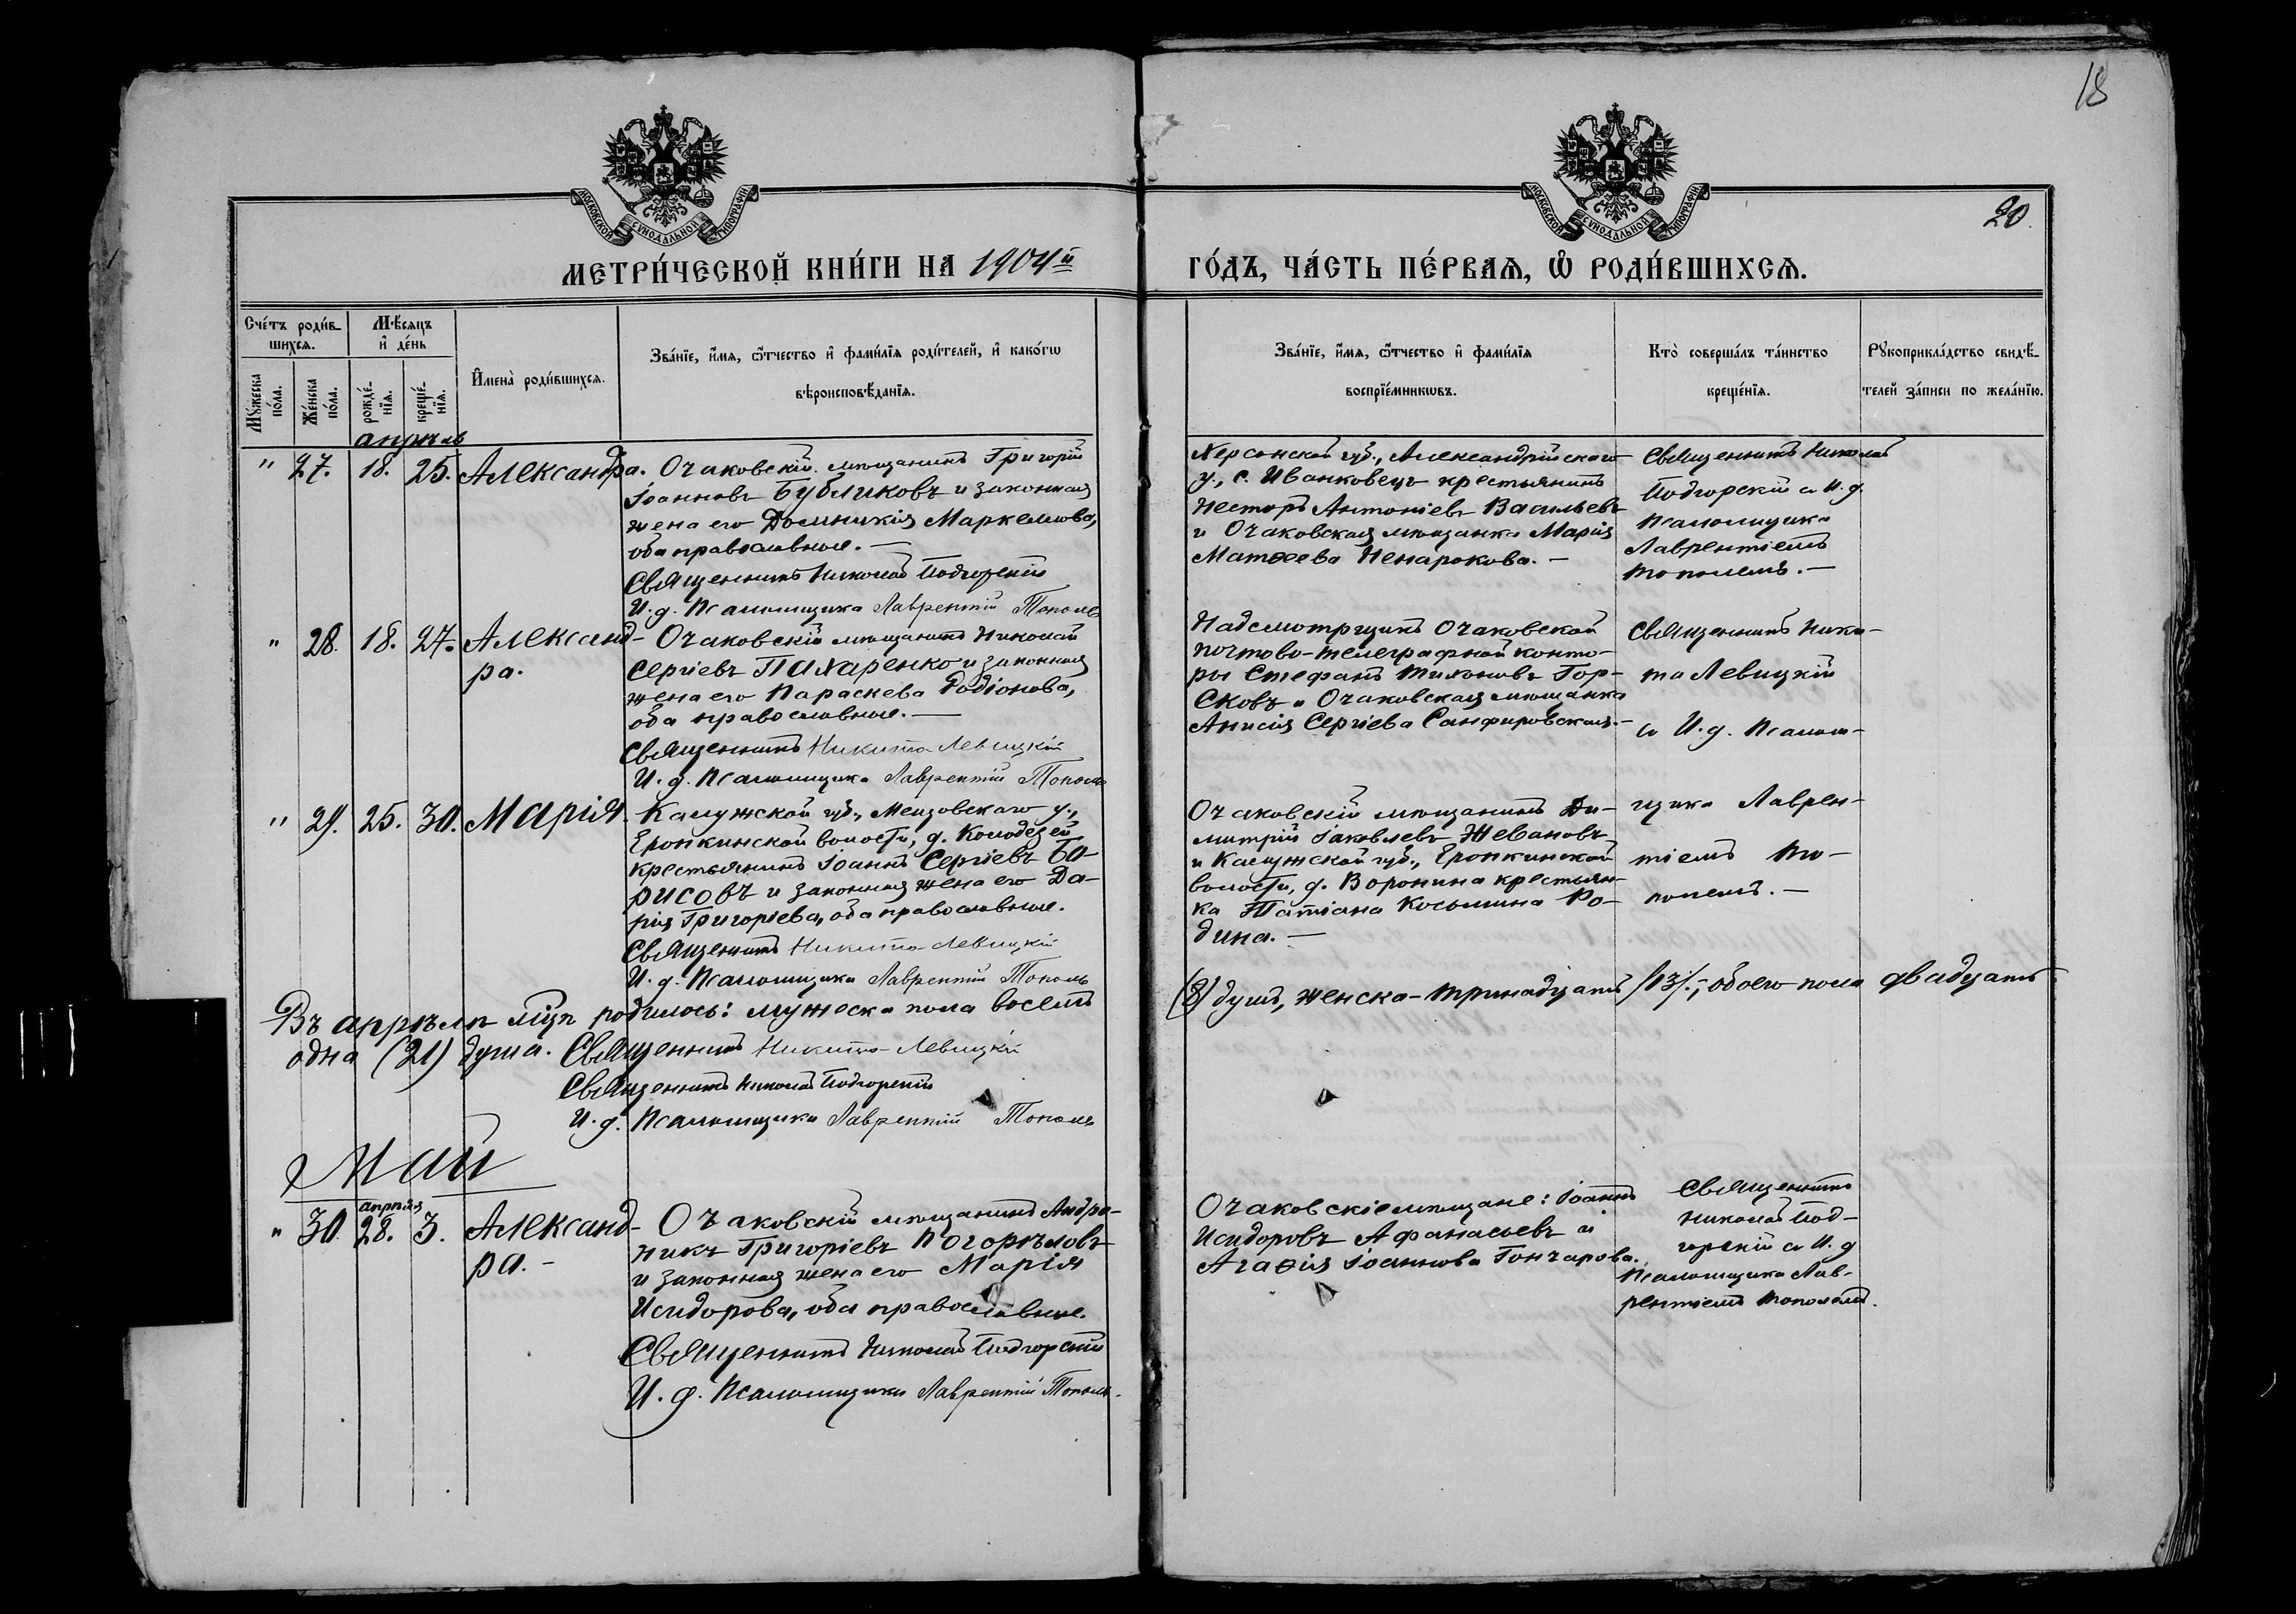 18
20.
МОСКОВСКОЙ СѴНОДАЛЬНОЙ ТИПОГРАФІИ
МОСКОВСКОЙ СѴНОДАЛЬНОЙ ТИПОГРАФІИ
МЕТРИ́ЧЕСКОЙ КНИ́ГИ НА 1904й
ГО́ДЪ, ЧА́СТЬ ПЕ́РВАѦ, Ѽ РОДИ́ВШИХСѦ.
Сче́тъ роди́в-
шихсѧ.
Мѣ́сѧцъ
и҆ де́нь
Мꙋ́жеска по́ла.
Же́нска по́ла.
рожде́-нїѧ.
креще́-нїѧ.
И҆мена̀ роди́вшихсѧ.
Зва́нїе, и҆́мѧ, ѻ҆́тчество и҆ фами́лїѧ роди́телей, и҆ како́гѡ
вѣроисповѣ́данїѧ.
Зва́нїе, и҆́мѧ, ѻ҆́тчество и҆ фами́лїѧ
воспрїе́мникѡвъ.
Кто̀ соверша́лъ та́инство
креще́нїѧ.
Рꙋкоприкла́дство свидѣ́-
телей за́писи по жела́нїю.
апрѣль
" 27. 18. 25. Александра.
Очаковскій мѣщанинъ Григорій
Іоанновъ Бубликовъ и законная
жена его Домникія Маркелова,
оба православные. —
Священникъ Николай Подгорскій
И. д. Псаломщика Лаврентій Тополь
Херсонской губ., Александрійскаго
у., с. Иванковецъ крестьянинъ
Несторъ Антоніевъ Васильевъ
и Очаковская мѣщанка Марія
Матѳеева Ненарокова. —
Священникъ Николай
Подгорскій съ И. д.
Псаломщика
Лаврентіемъ
Тополемъ. —
" 28. 18. 27. Александ-
ра.
Очаковскій мѣщанинъ Николай
Сергіевъ Пахаренко и законная
жена его Параскева Родіонова,
оба православные. —
Священникъ Никита Левицкій
И. д. Псаломщика Лаврентій Тополь
Надсмотрщикъ Очаковской
почтово-телеграфной конто-
ры Стефанъ Тихоновъ Гор-
сковъ и Очаковская мѣщанка
Анисія Сергіева Санфировская. —
Священникъ Ники-
та Левицкій
съ И. д. Псалом-
щика Лаврен-
тіемъ То-
полемъ. —
" 29. 25. 30. Марія
Калужской губ., Мещовскаго у.,
Еропкинской волости, д. Колодезей
крестьянинъ Іоаннъ Сергіевъ Бо-
рисовъ и законная жена его Да-
рія Григоріева, оба православные.
Священникъ Никита Левицкій
И. д. Псаломщика Лаврентій Тополь
Очаковскій мѣщанинъ Ди-
митрій Іаковлевъ Жевановъ
и Калужской губ., Еропкинской
волости, д. Воронина крестьян-
ка Татіана Косьмина Ро-
дина. —
Въ апрѣлѣ мцѣ родилось: мужеска пола восемь
(8) душъ, женска – тринадцать /13/., обоего пола двадцать
одна (21) душа. Священникъ Никита Левицкій
Священникъ Николай Подгорскій
И. д. Псаломщика Лаврентій Тополь
Май
апрѣля
" 30. 28. 3. Александ-
ра. –
Очаковскій мѣщанинъ Андро-
никъ Григоріевъ Погорѣловъ
и законная жена его Марія
Исидорова, оба православные.
Священникъ Николай Подгорскій
И. д. Псаломщика Лаврентій Тополь.
Очаковскіе мѣщане: Іоаннъ
Исидоровъ Афанасьевъ и
Агаѳія Іоаннова Гончарова.
Священникъ
Николай Под-
горскій съ И. д
Псаломщика Лав-
рентіемъ Тополемъ.